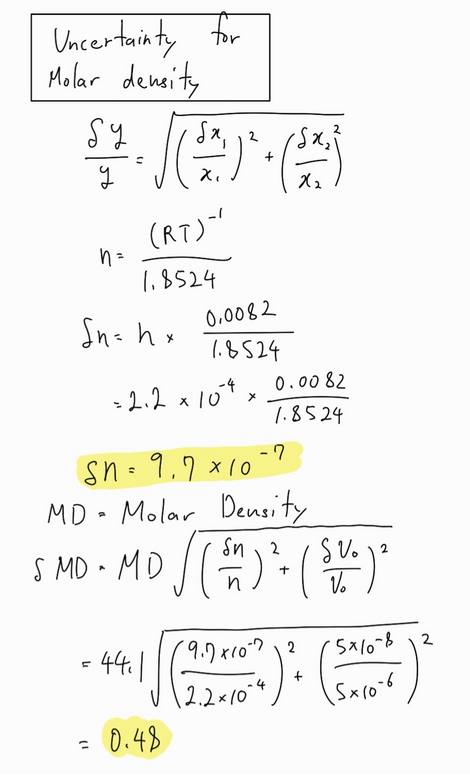 Uncertainty for
Molar density
δy/y = √((δx₁/x₁)² + (δx₂/x₂)²)
n = (RT)⁻¹/1.8524
δn = n × 0.0082/1.8524
= 2.2 × 10⁻⁴ × 0.0082/1.8524
δn = 9.7 × 10⁻⁷
MD = Molar Density
δMD = MD √((δn/n)² + (δV₀/V₀)²)
= 44.1 √((9.7×10⁻⁷/2.2×10⁻⁴)² + (5×10⁻⁸/5×10⁻⁶)²)
= 0.48